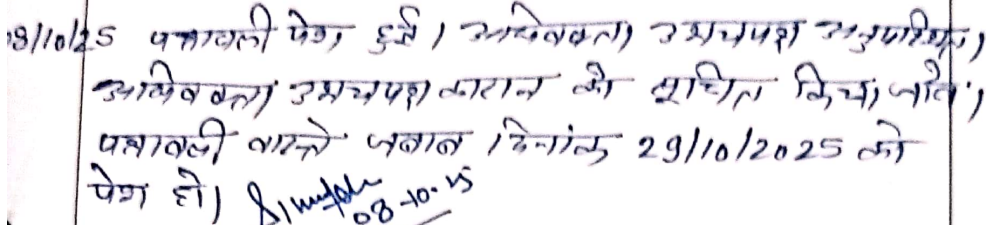 8/10/25 पत्रावली पेश हुई। अधिवक्ता उभयपक्ष अनुपस्थित।
अधिवक्ता उभयपक्षकारान को सूचित किया जावे।
पत्रावली वास्ते जवाब दिनांक 29/10/2025 को
पेश हो। 08-10-25